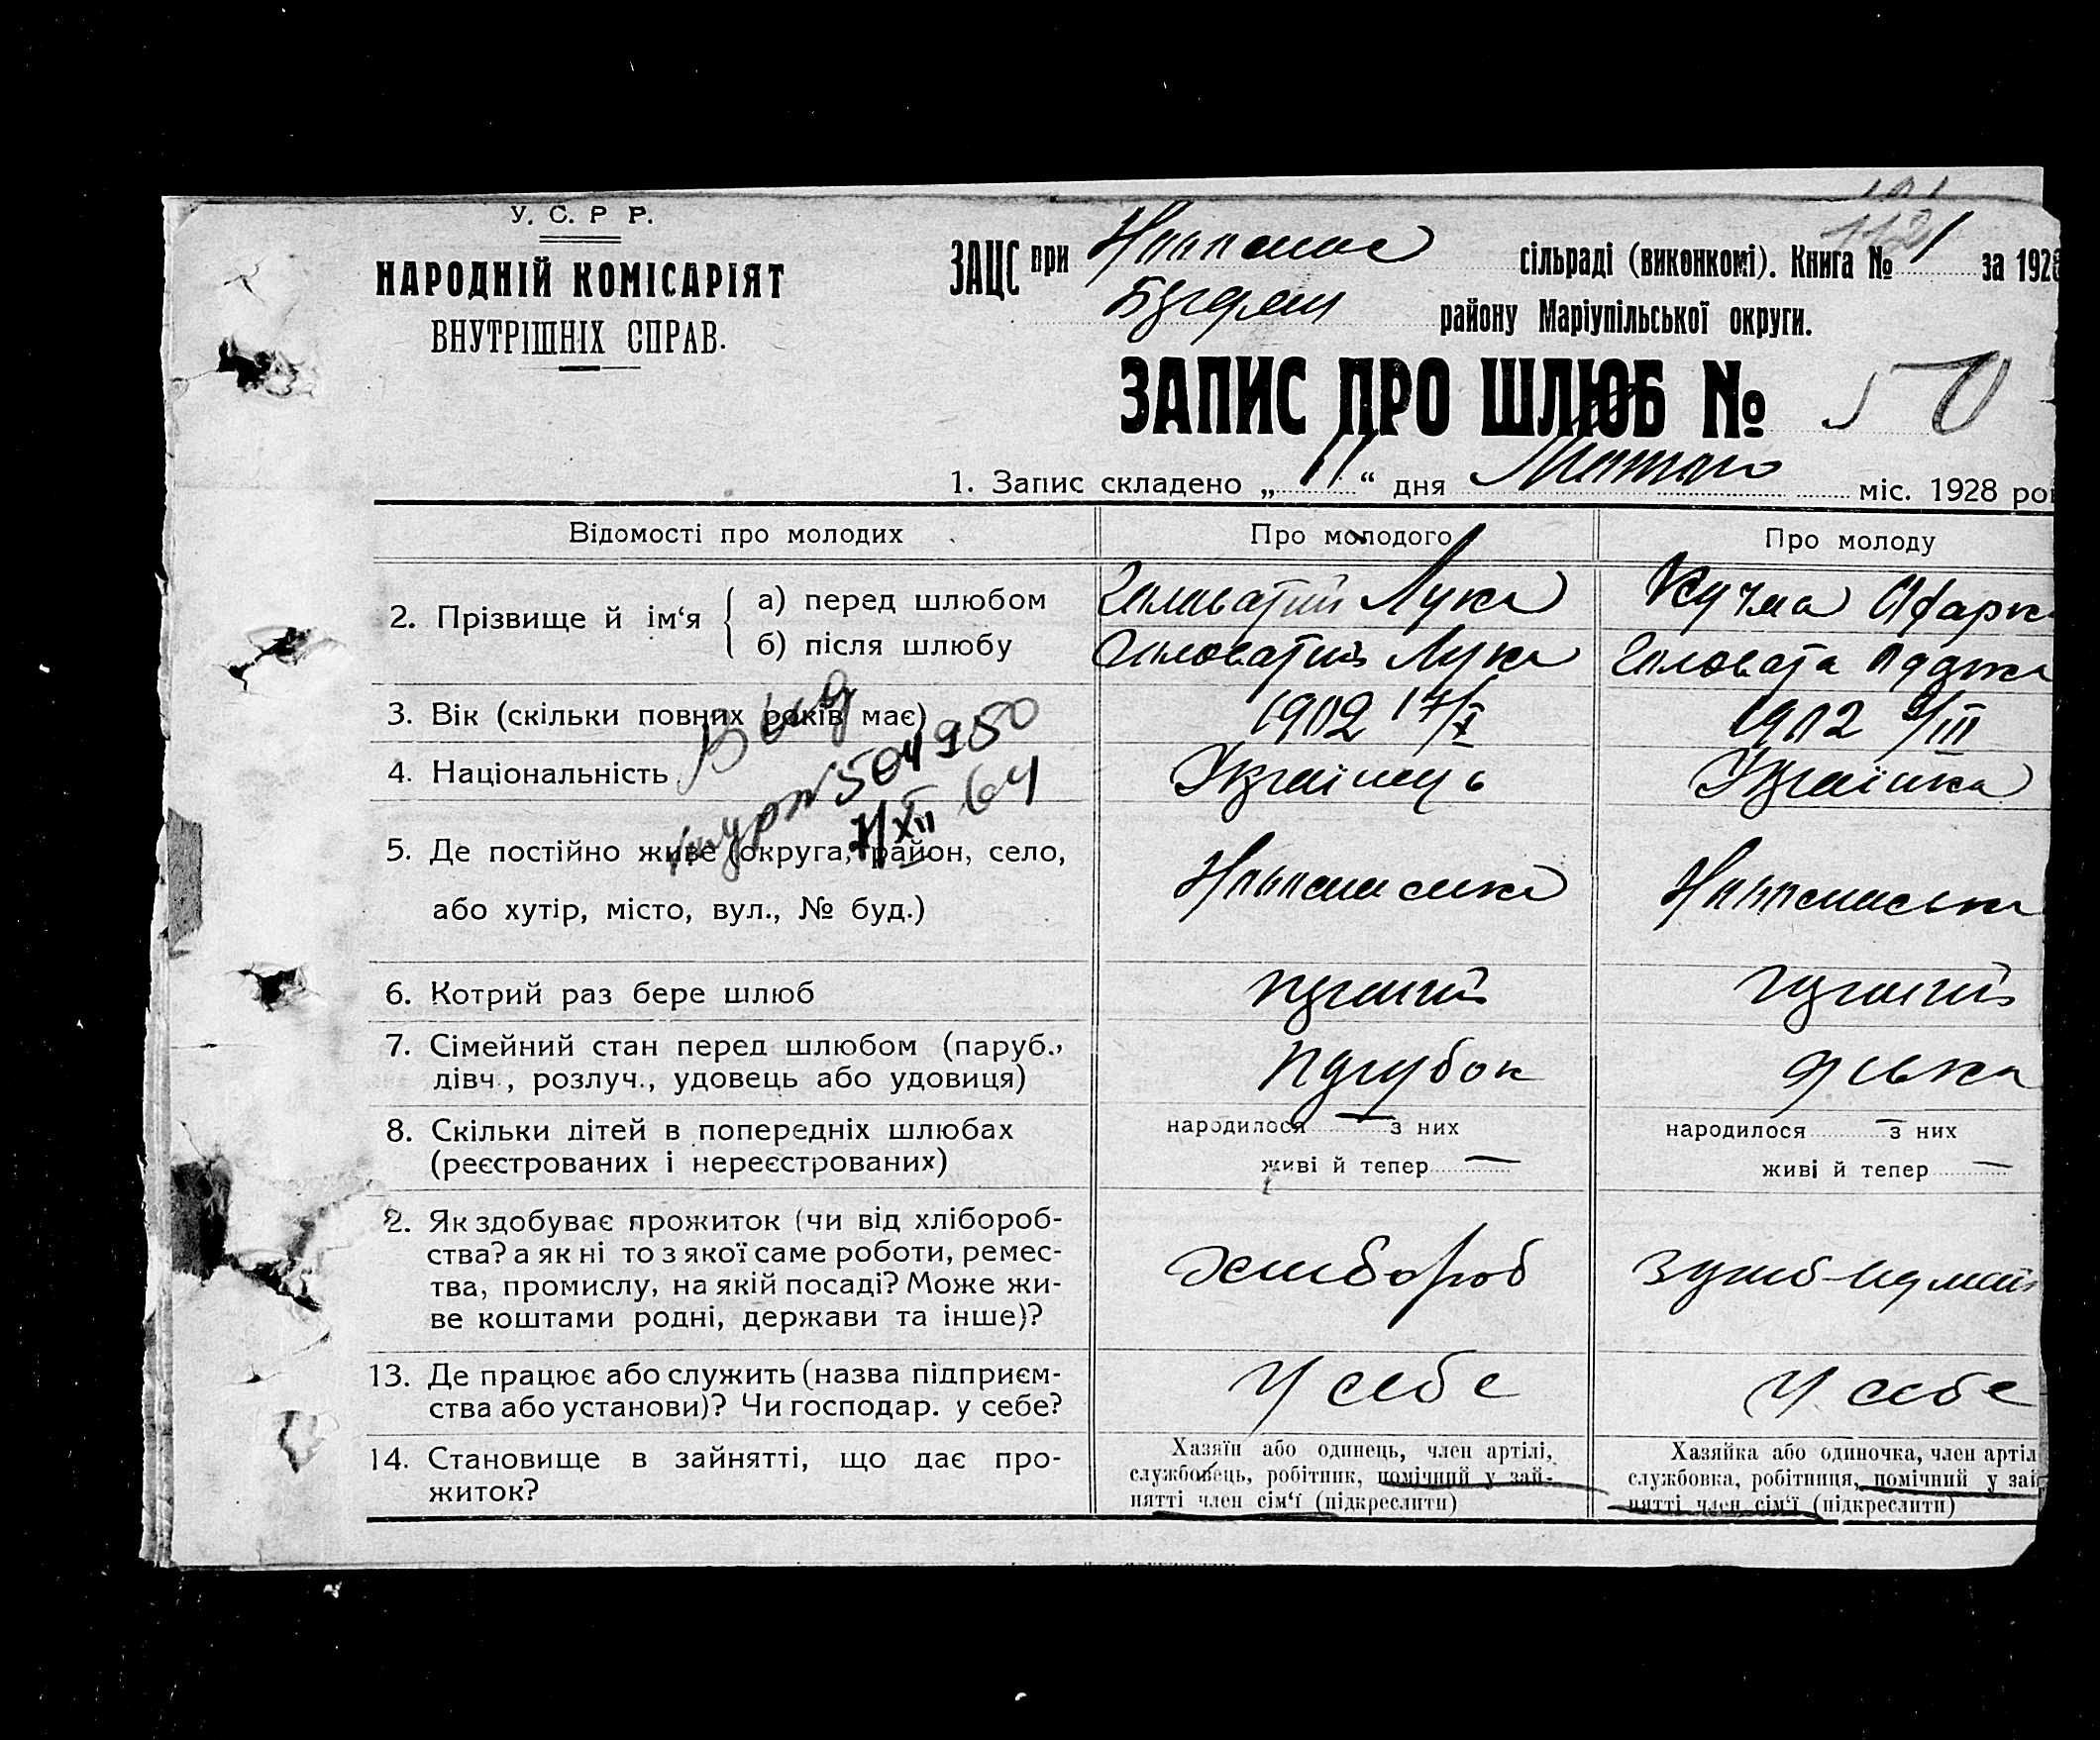 У. С. Р. Р.
НАРОДНІЙ КОМІСАРІЯТ
ВНУТРІШНІХ СПРАВ.
ЗАЦС при сільраді (виконкомі). Книга № 1 за 192
району Маріупільської округи.
ЗАПИС ПРО ШЛЮБ № 50
1. Запис складено „ 11 “ дня Лютого міс. 1928 ро
Відомості про молодих
Про молодого
Про молоду
2. Прізвище й ім‘я
а) перед шлюбом
Головатий Лука
Кучма
б) після шлюбу
Головатий Лука
Головата
3. Вік (скільки повних років має)
1902 17/X
1902 9/III
4. Національність
Українець
Українка
504980
7/XII 64
5. Де постійно живе (округа, район, село,
або хутір, місто, вул., № буд.)
6. Котрий раз бере шлюб
перший
перший
7. Сімейний стан перед шлюбом (паруб.,
дівч., розлуч., удовець або удовиця)
Парубок
8. Скільки дітей в попередніх шлюбах
(реєстрованих і нереєстрованих)
народилося — з них
живі й тепер —
народилося — з них
живі й тепер —
2. Як здобуває прожиток (чи від хлібороб-
ства? а як ні то з якої саме роботи, ремес-
тва, промислу, на якій посаді? Може жи-
ве коштами родні, держави та інше)?
Хлибороб
13. Де працює або служить (назва підприєм-
ства або установи)? Чи господар. у себе?
У себе
У себе
14. Становище в зайнятті, що дає про-
житок?
Хазяїн або одинець, член артілі,
службовець, робітник, помічний у зай-
нятті член сім‘ї (підкреслити)
Хазяйка або одиночка, член артіл
службовка, робітниця, помічний у зай
нятті член сім‘ї (підкреслити)